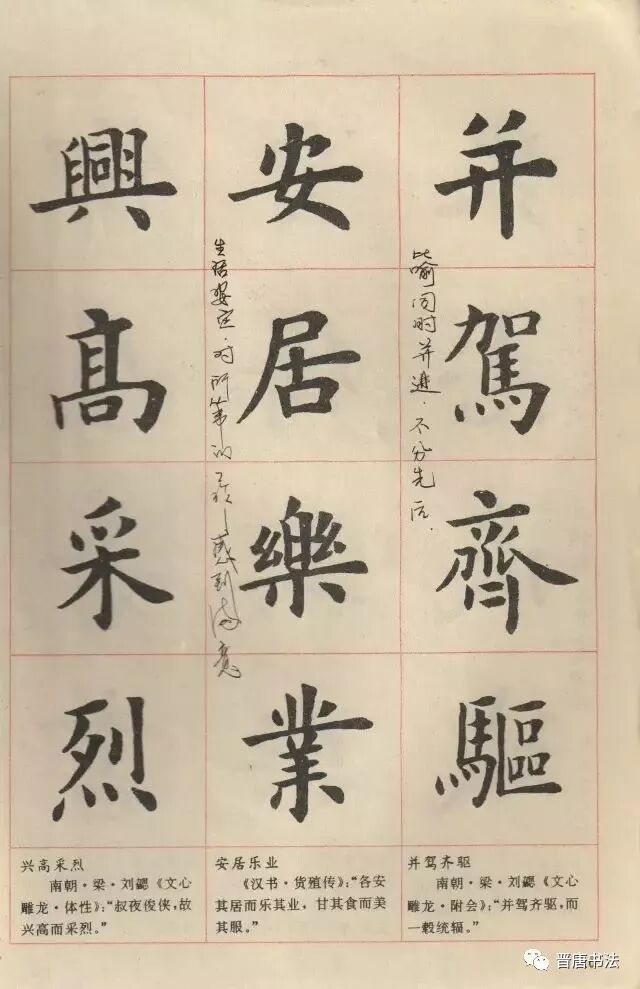 并驾齊驅
安居樂業
興高采烈
比喻同时并进.不分先后.
生活安定.对所从事的工作感到满意
并驾齐驱
南朝·梁·刘勰《文心
雕龙·附会》:“并驾齐驱,而
一毂统辐。”
安居乐业
《汉书·货殖传》:“各安
其居而乐其业,甘其食而美
其服。”
兴高采烈
南朝·梁·刘勰《文心
雕龙·体性》:“叔夜俊侠,故
兴高而采烈。”
晋唐书法